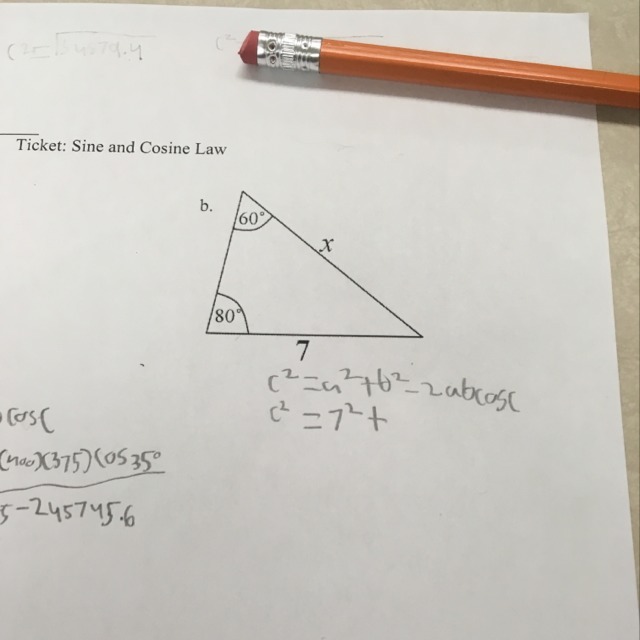 Ticket: Sine and Cosine Law
b.
60°
x
80°
7
c² = a² + b² - 2abcosC
c² = 7² +
cosC
(400)(375)cos35°
5 - 245745.6